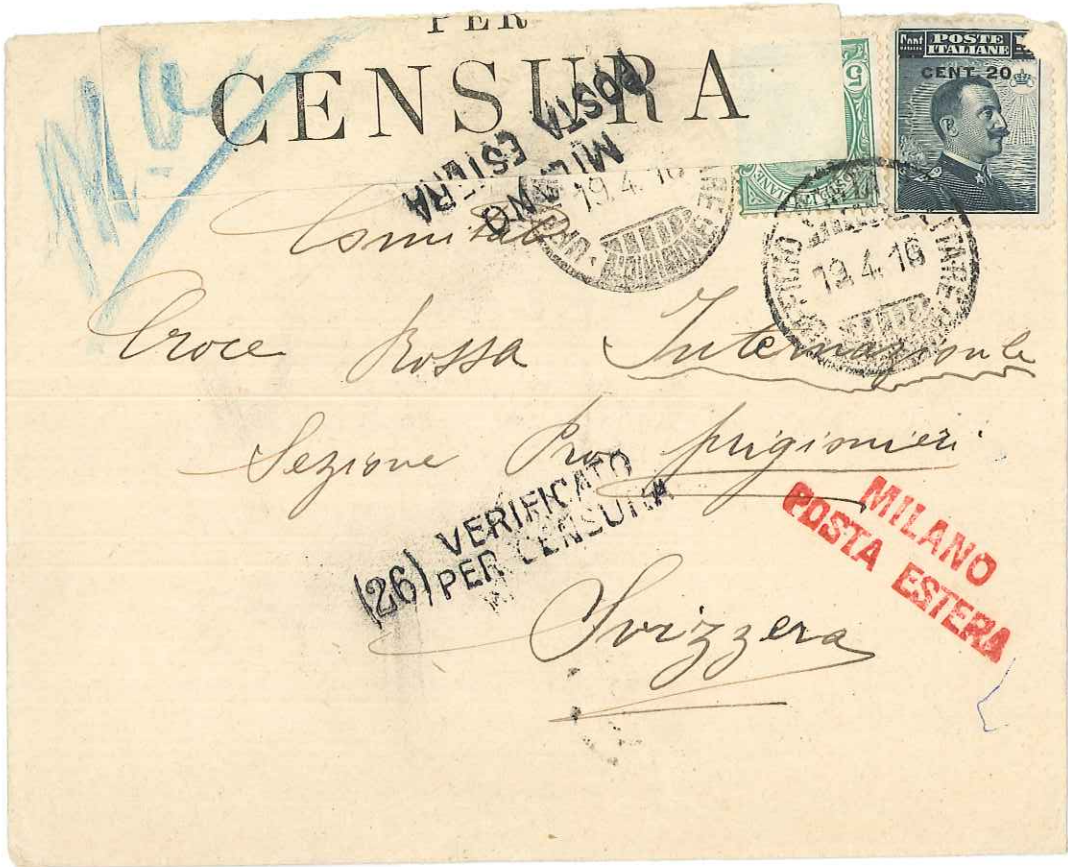 PER
CENSURA
MILANO
POSTA ESTERA
5
POSTE
ITALIANE
Cent
CENT. 20
19.4.16
19.4.16
Comitato
Croce Rossa Internazionale
Sezione Pro prigionieri
(26) VERIFICATO
PER CENSURA
MILANO
POSTA ESTERA
Svizzera